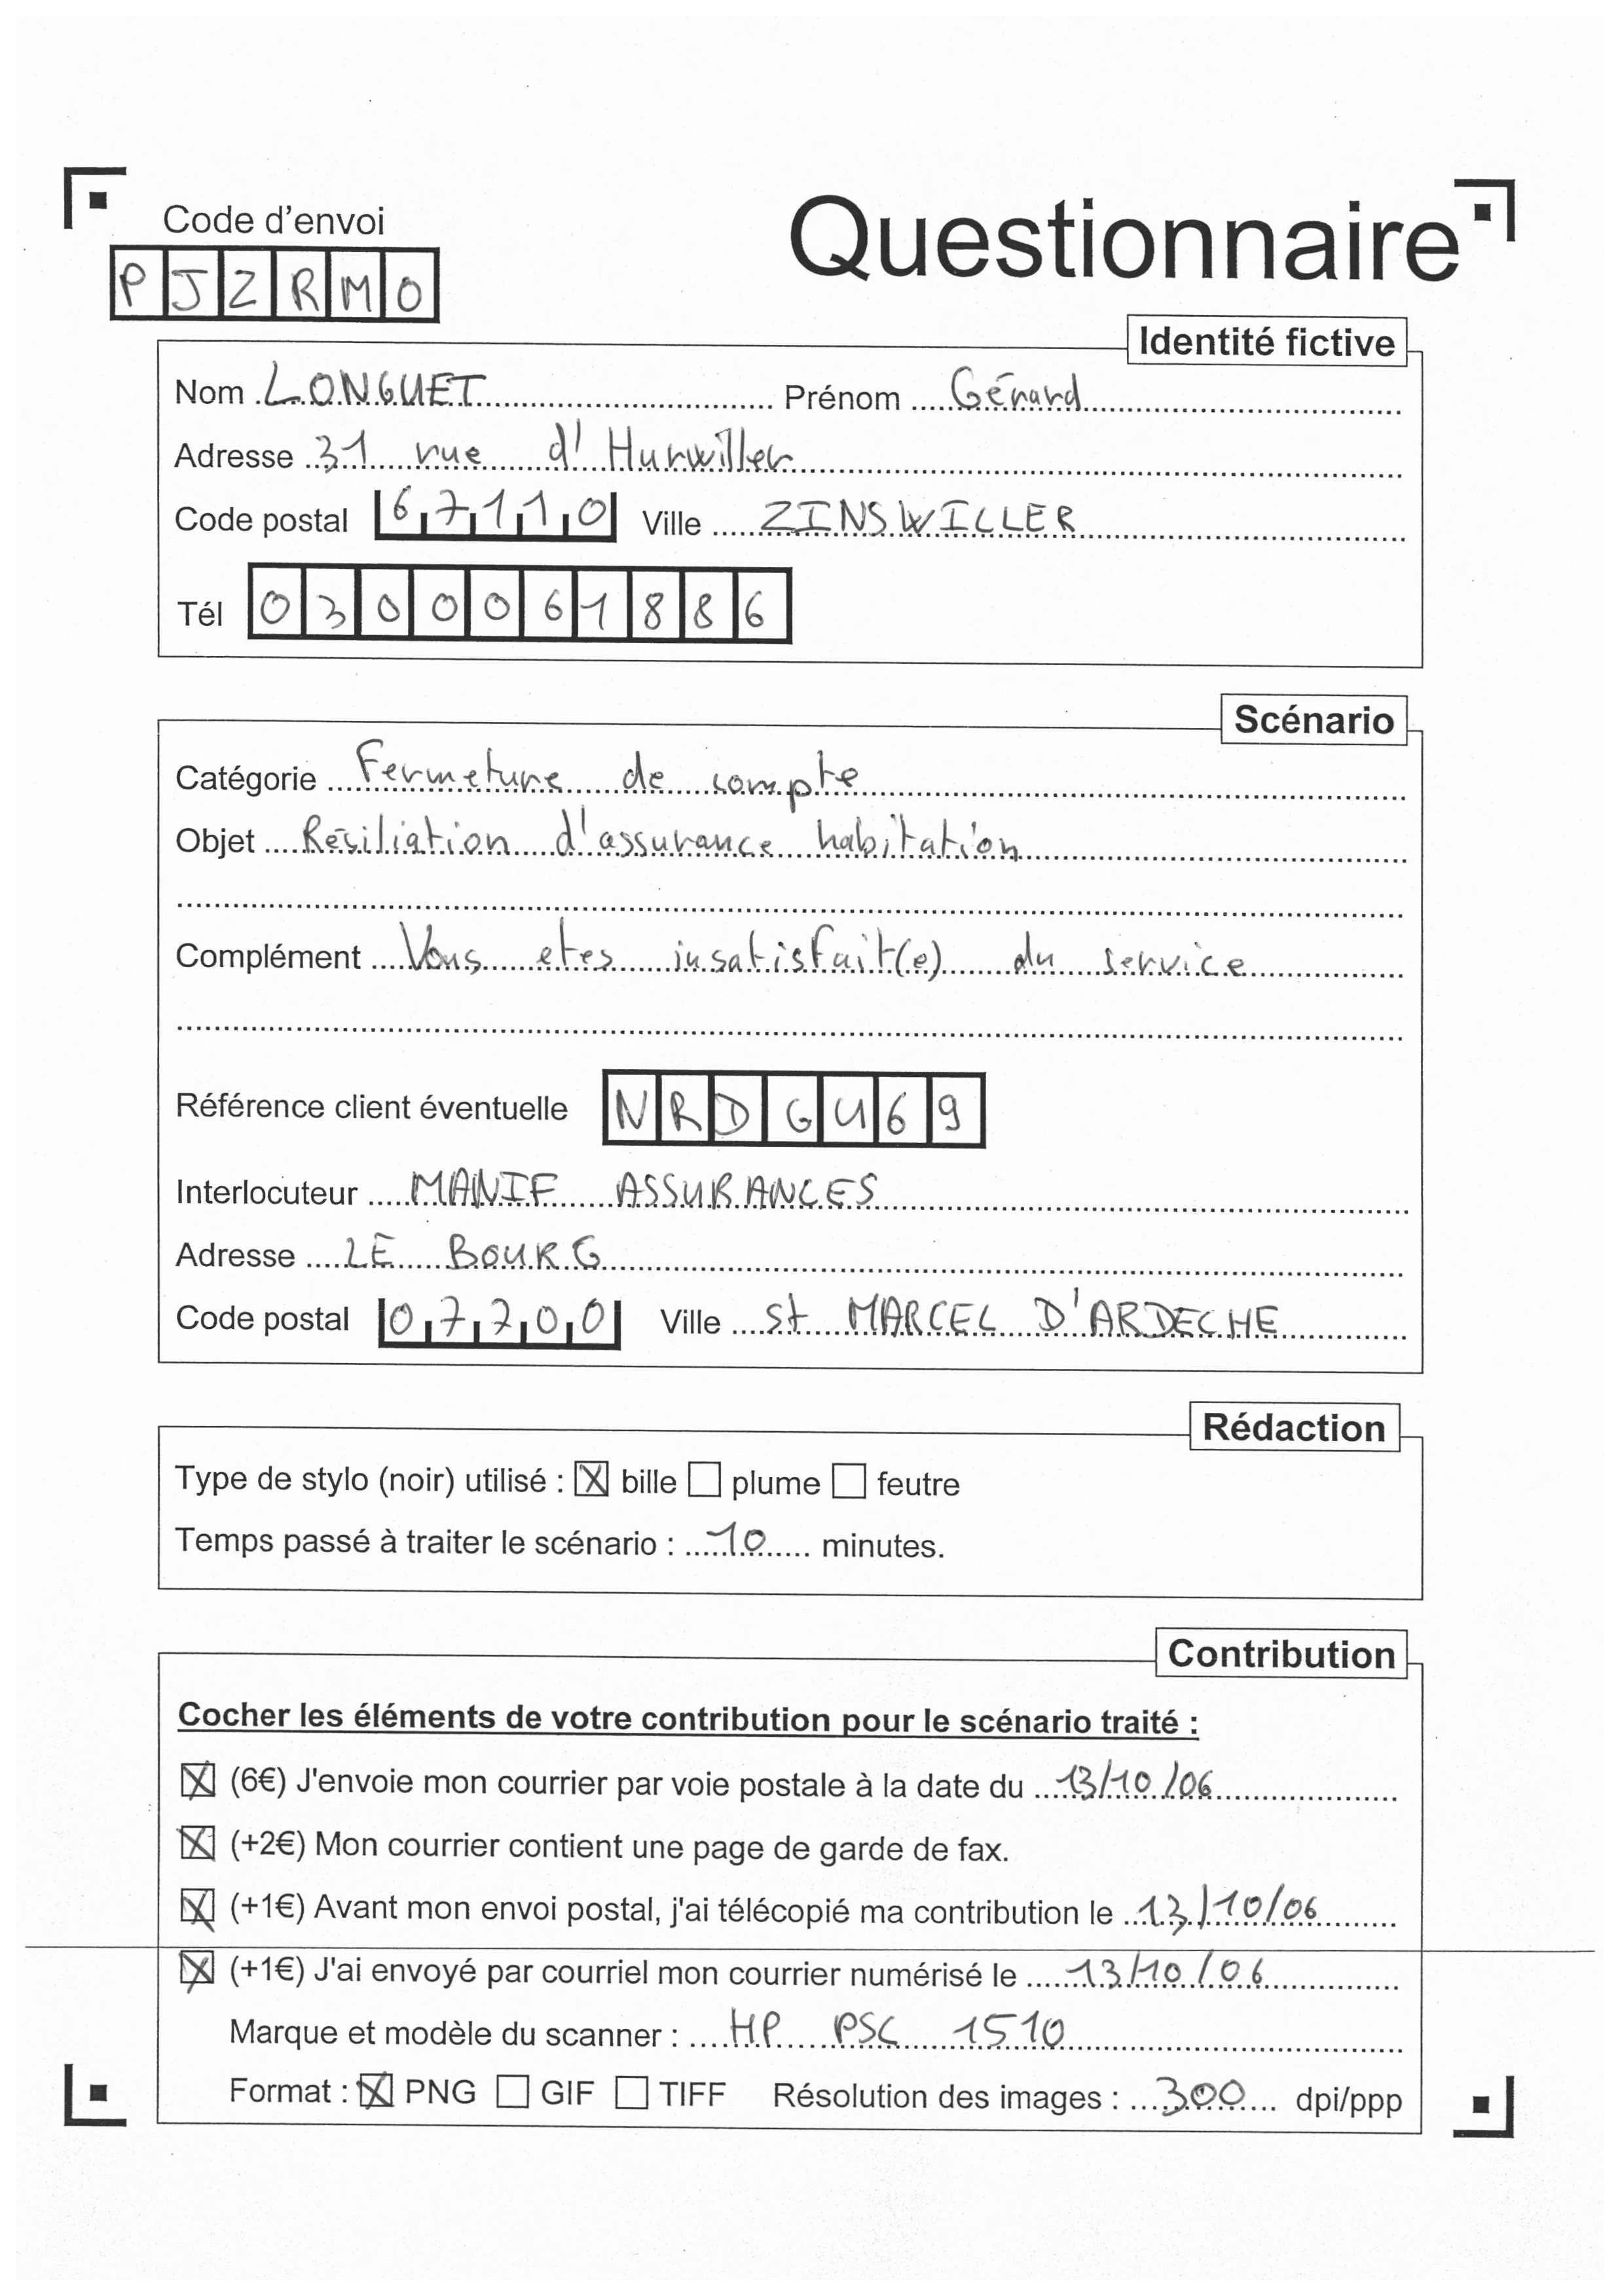 Code d'envoi
Questionnaire
PJZRMO
Identité fictive
Nom LONGUET Prénom Gérard
Adresse 31 rue d'Hurwiller
Code postal 67110 Ville ZINSWILLER
Tél 0300061886
Scénario
Catégorie Fermeture de compte
Objet Résiliation d'assurance habitation
Complément Vous etes insatisfait(e) du service
Référence client éventuelle NRDGU69
Interlocuteur MANIF ASSURANCES
Adresse LE BOURG
Code postal 07700 Ville St MARCEL D'ARDECHE
Rédaction
Type de stylo (noir) utilisé : ☒ bille ☐ plume ☐ feutre
Temps passé à traiter le scénario : 10 minutes.
Contribution
Cocher les éléments de votre contribution pour le scénario traité :
☒ (6€) J'envoie mon courrier par voie postale à la date du 13/10/06
☒ (+2€) Mon courrier contient une page de garde de fax.
☒ (+1€) Avant mon envoi postal, j'ai télécopié ma contribution le 13/10/06
☒ (+1€) J'ai envoyé par courriel mon courrier numérisé le 13/10/06
Marque et modèle du scanner : HP PSC 1510
Format : ☒ PNG ☐ GIF ☐ TIFF Résolution des images : 300 dpi/ppp